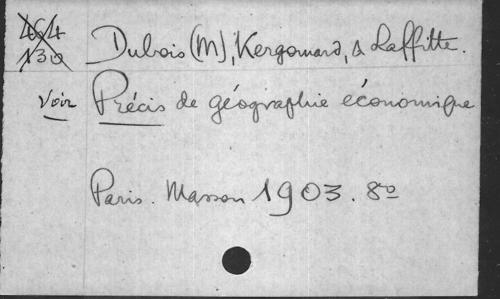 Dubois (M), Kergomard, & Laffitte.
Voir Précis de géographie économique
Paris. Masson 1903. 8º